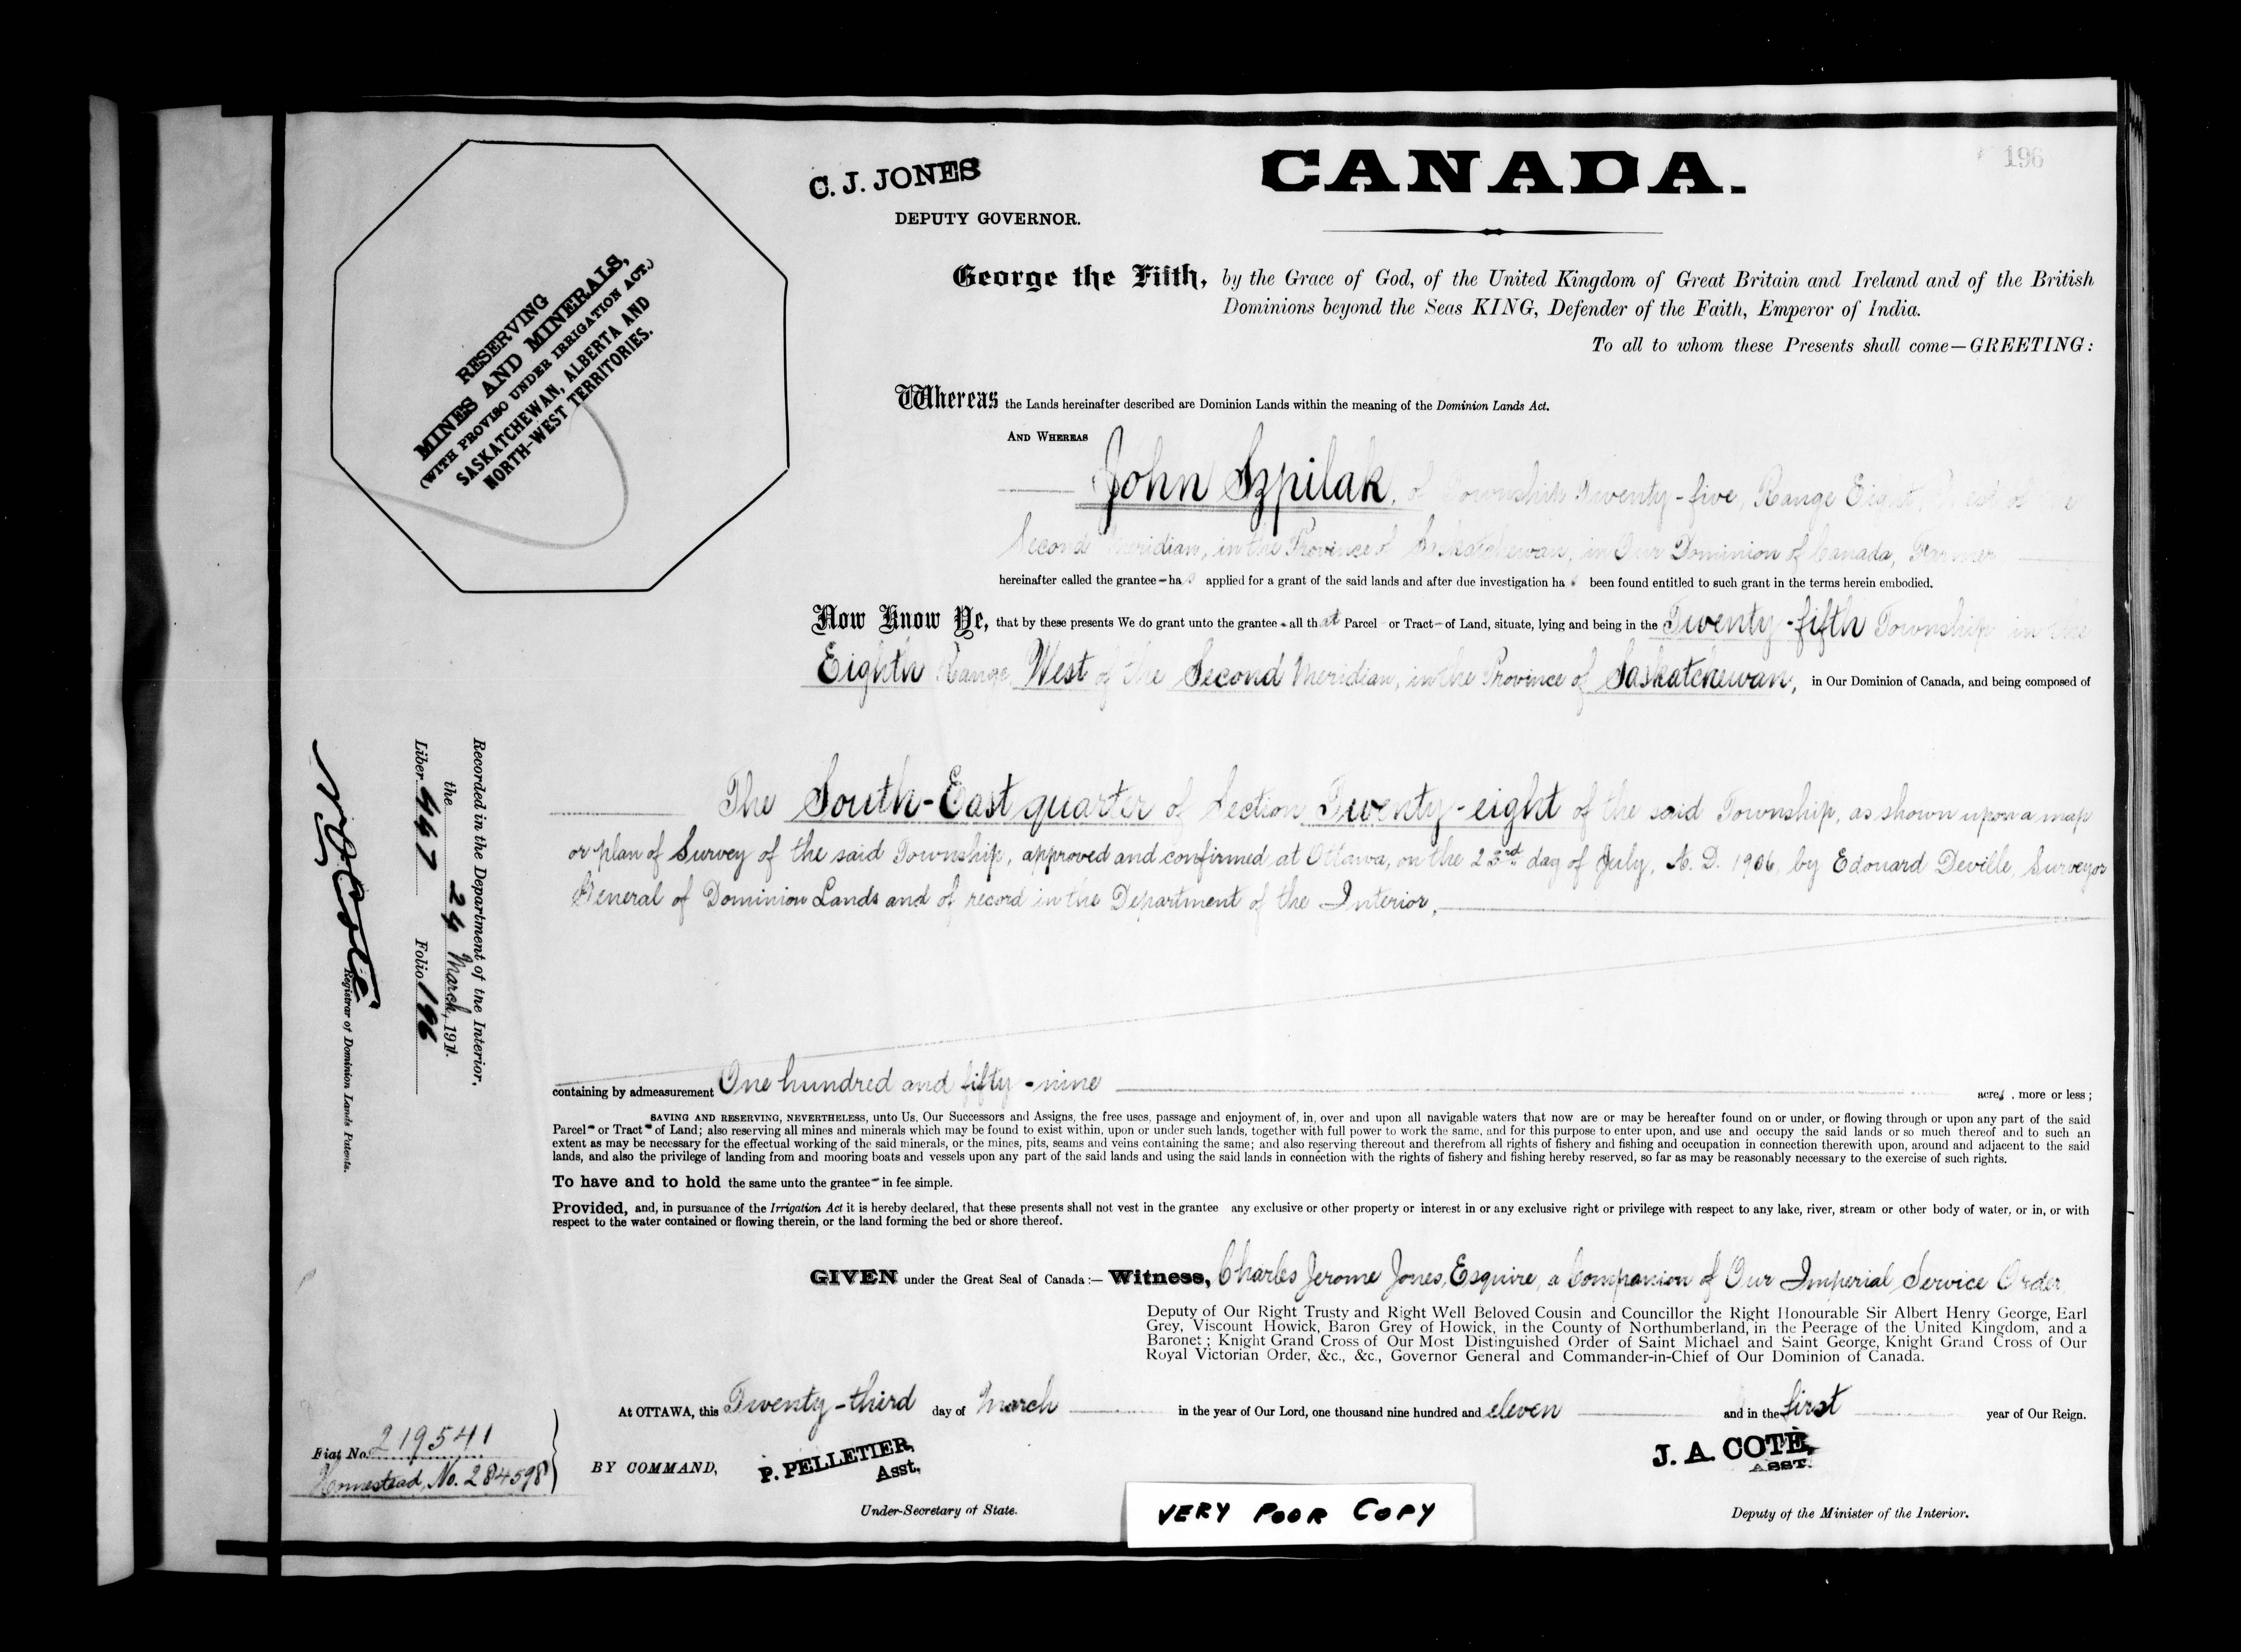 196
C. J. JONES
DEPUTY GOVERNOR.
CANADA.
RESERVING
MINES AND MINERALS,
(WITH PROVISO UNDER IRRIGATION ACT.)
SASKATCHEWAN, ALBERTA AND
NORTH-WEST TERRITORIES.
George the Fifth, by the Grace of God, of the United Kingdom of Great Britain and Ireland and of the British
Dominions beyond the Seas KING, Defender of the Faith, Emperor of India.
To all to whom these Presents shall come—GREETING:
Whereas the Lands hereinafter described are Dominion Lands within the meaning of the Dominion Lands Act.
AND WHEREAS
John Szpilak, of Township Twenty-five, Range Eight, West of the
Second Meridian, in the Province of Saskatchewan, in Our Dominion of Canada, Farmer
hereinafter called the grantee - has applied for a grant of the said lands and after due investigation has been found entitled to such grant in the terms herein embodied.
Now Know Ye, that by these presents We do grant unto the grantee - all that Parcel - or Tract - of Land, situate, lying and being in the Twenty-fifth Township in the
Eighth Range, West of the Second Meridian, in the Province of Saskatchewan, in Our Dominion of Canada, and being composed of
The South-East quarter of Section Twenty-eight of the said Township, as shown upon a map
or plan of Survey of the said Township, approved and confirmed at Ottawa, on the 23rd day of July, A. D. 1906, by Edouard Deville, Surveyor
General of Dominion Lands and of record in the Department of the Interior,
containing by admeasurement One hundred and fifty-nine acres, more or less;
SAVING AND RESERVING, NEVERTHELESS, unto Us, Our Successors and Assigns, the free uses, passage and enjoyment of, in, over and upon all navigable waters that now are or may be hereafter found on or under, or flowing through or upon any part of the said
Parcel - or Tract - of Land; also reserving all mines and minerals which may be found to exist within, upon or under such lands, together with full power to work the same, and for this purpose to enter upon, and use and occupy the said lands or so much thereof and to such an
extent as may be necessary for the effectual working of the said minerals, or the mines, pits, seams and veins containing the same; and also reserving thereout and therefrom all rights of fishery and fishing and occupation in connection therewith upon, around and adjacent to the said
lands, and also the privilege of landing from and mooring boats and vessels upon any part of the said lands and using the said lands in connection with the rights of fishery and fishing hereby reserved, so far as may be reasonably necessary to the exercise of such rights.
To have and to hold the same unto the grantee - in fee simple.
Provided, and, in pursuance of the Irrigation Act it is hereby declared, that these presents shall not vest in the grantee any exclusive or other property or interest in or any exclusive right or privilege with respect to any lake, river, stream or other body of water, or in, or with
respect to the water contained or flowing therein, or the land forming the bed or shore thereof.
GIVEN under the Great Seal of Canada :— Witness, Charles Jerome Jones, Esquire, a Companion of Our Imperial Service Order,
Deputy of Our Right Trusty and Right Well Beloved Cousin and Councillor the Right Honourable Sir Albert Henry George, Earl
Grey, Viscount Howick, Baron Grey of Howick, in the County of Northumberland, in the Peerage of the United Kingdom, and a
Baronet; Knight Grand Cross of Our Most Distinguished Order of Saint Michael and Saint George, Knight Grand Cross of Our
Royal Victorian Order, &c., &c., Governor General and Commander-in-Chief of Our Dominion of Canada.
At OTTAWA, this Twenty-third day of March in the year of Our Lord, one thousand nine hundred and eleven and in the first year of Our Reign.
BY COMMAND,
P. PELLETIER,
Asst.
Under-Secretary of State.
J. A. COTE,
ASST.
Deputy of the Minister of the Interior.
Recorded in the Department of the Interior,
the 24 March, 1911.
Liber 447 Folio 196
N. O. Coté
Registrar of Dominion Lands Patents.
Fiat No. 219541
Homestead, No. 284598
VERY POOR COPY